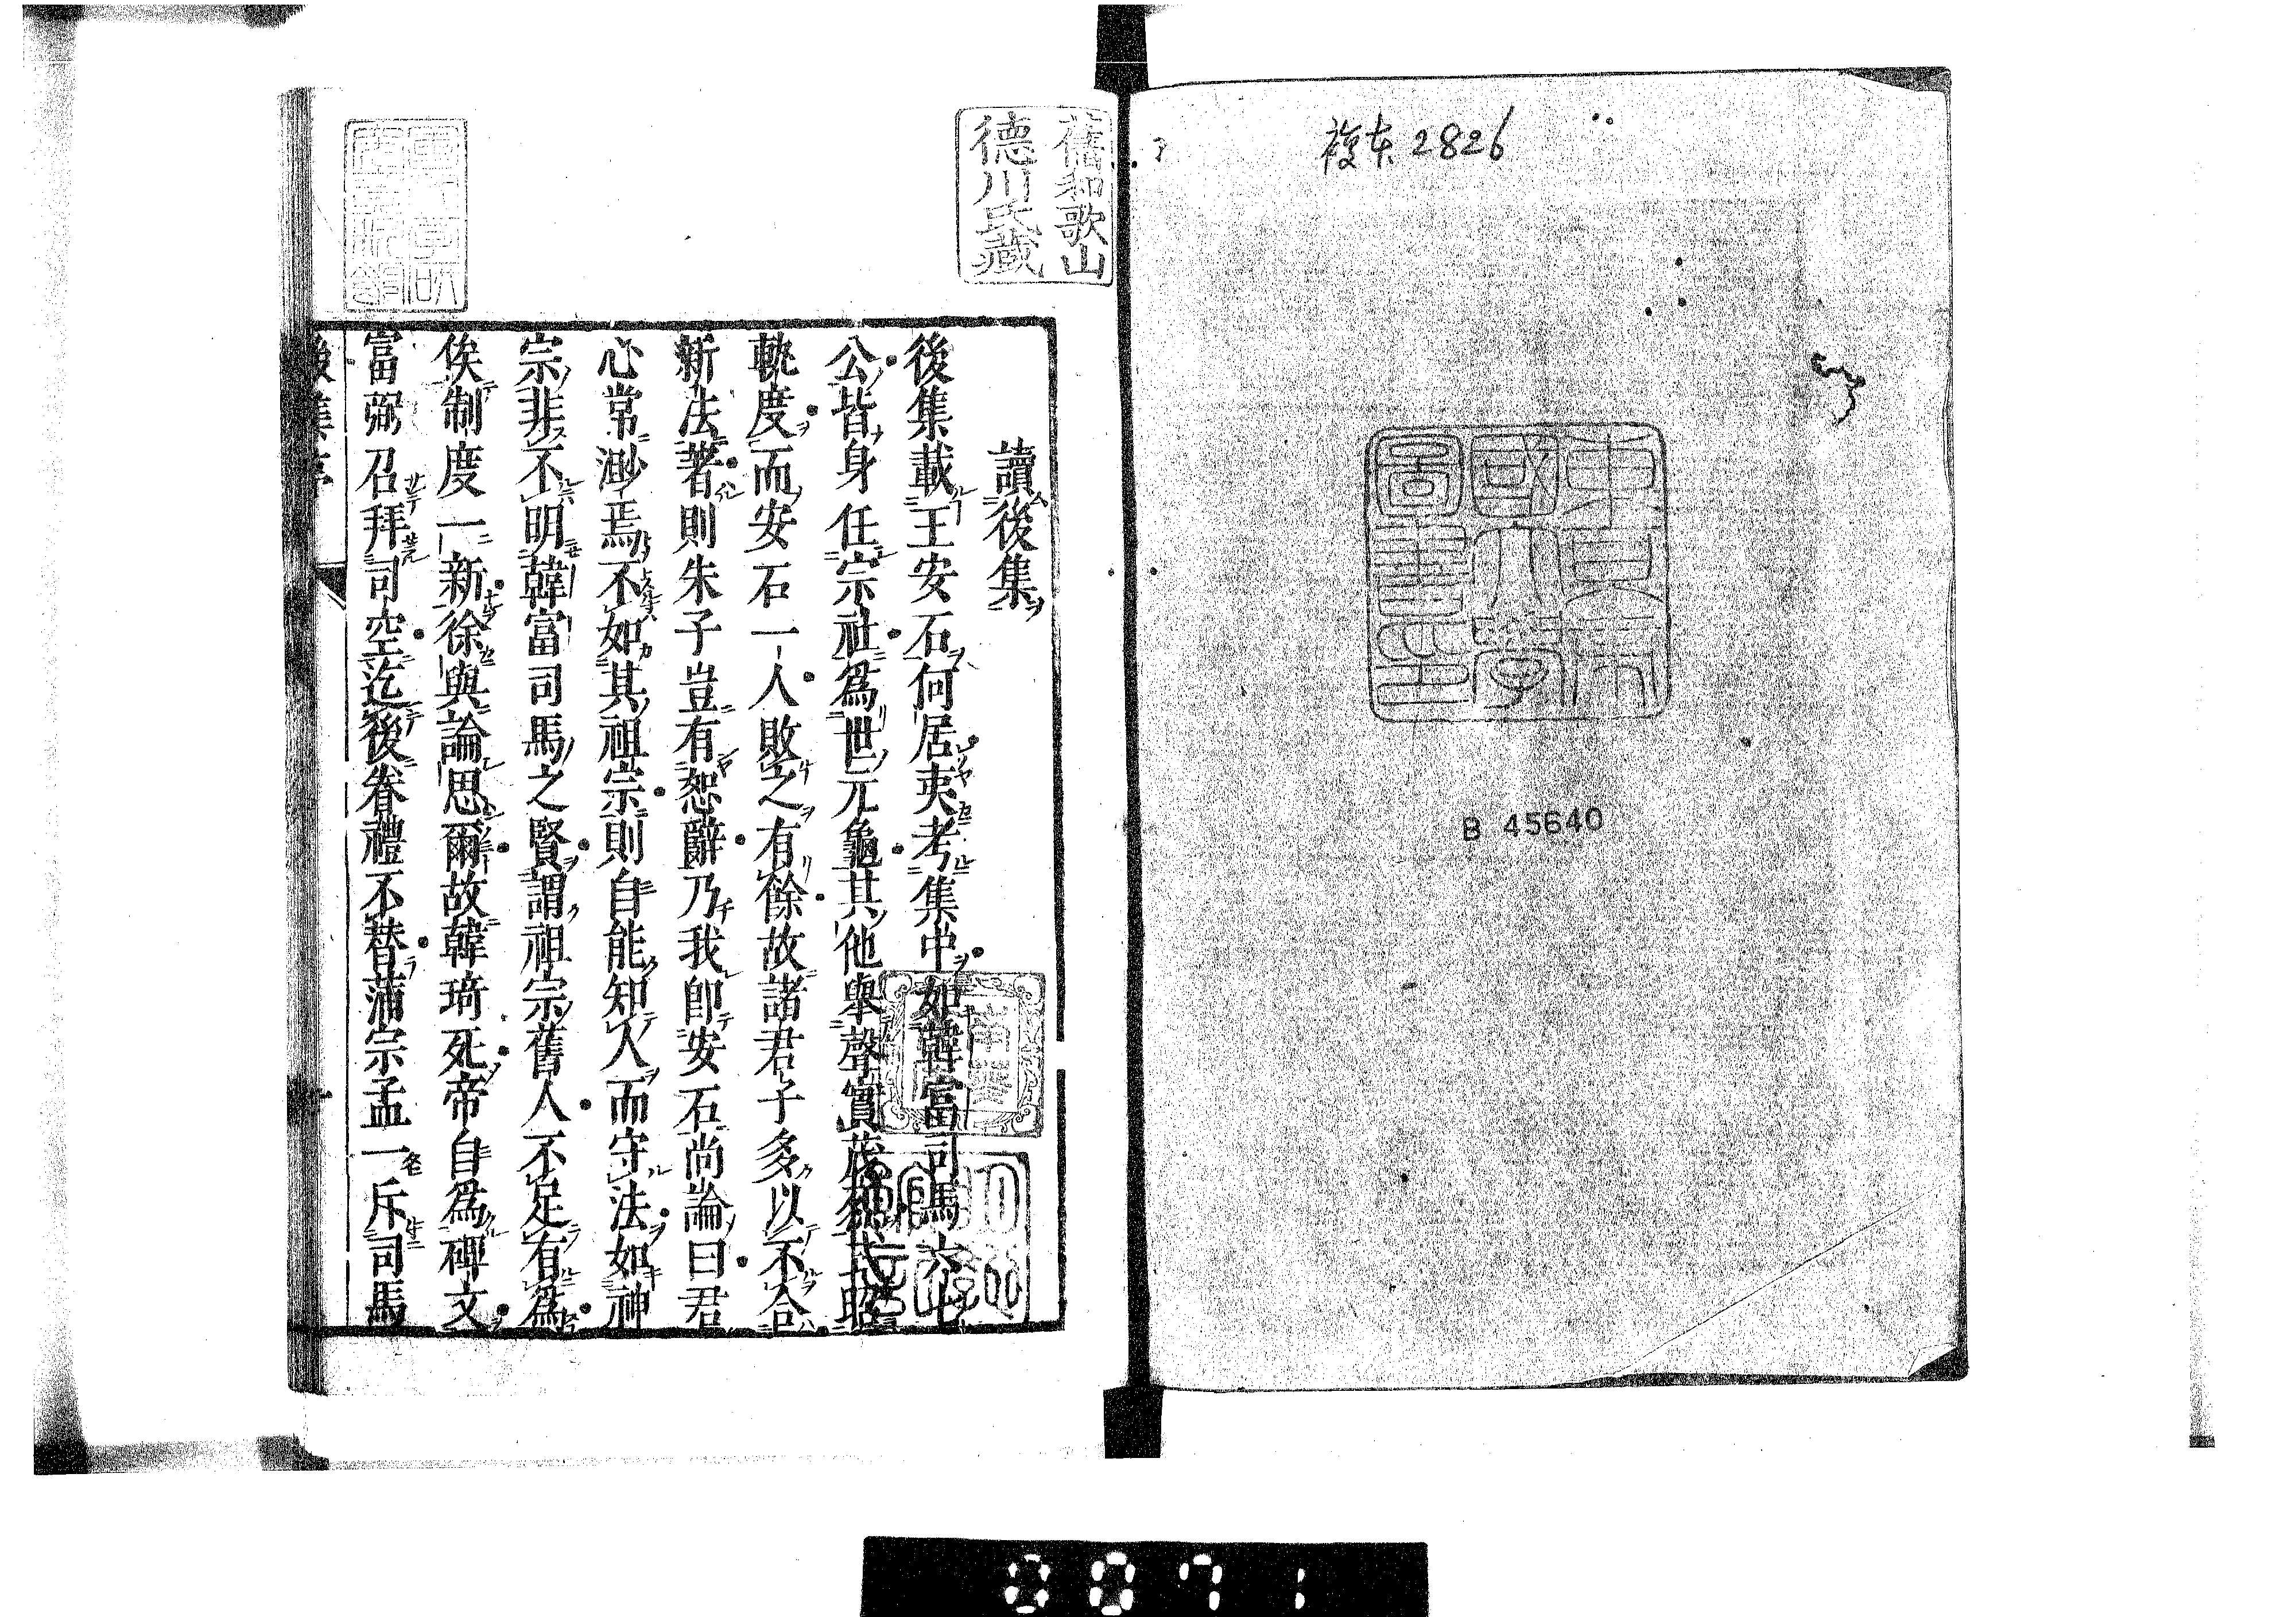 複东 2826
東京帝
國大學
圖書印
B 45640
舊和歌山
德川氏藏
讀後集
後集載王安石何居夷考集中如韓富司馬六七
公皆身任宗社爲世元龜其他舉聲實茂
軌度而安石一人敗之有餘故諸君子多以不合
新法著則朱子豈有恕辭乃我卽安石尚論曰君
心常渺焉不如其祖宗則自能知人而守法如神
宗非不明韓富司馬之賢謂祖宗舊人不足有爲
俟制度一新徐與論思爾故韓琦死帝自爲碑文
富弼召拜司空迄後眷禮不替蒲宗孟一斥司馬
後集序
0071